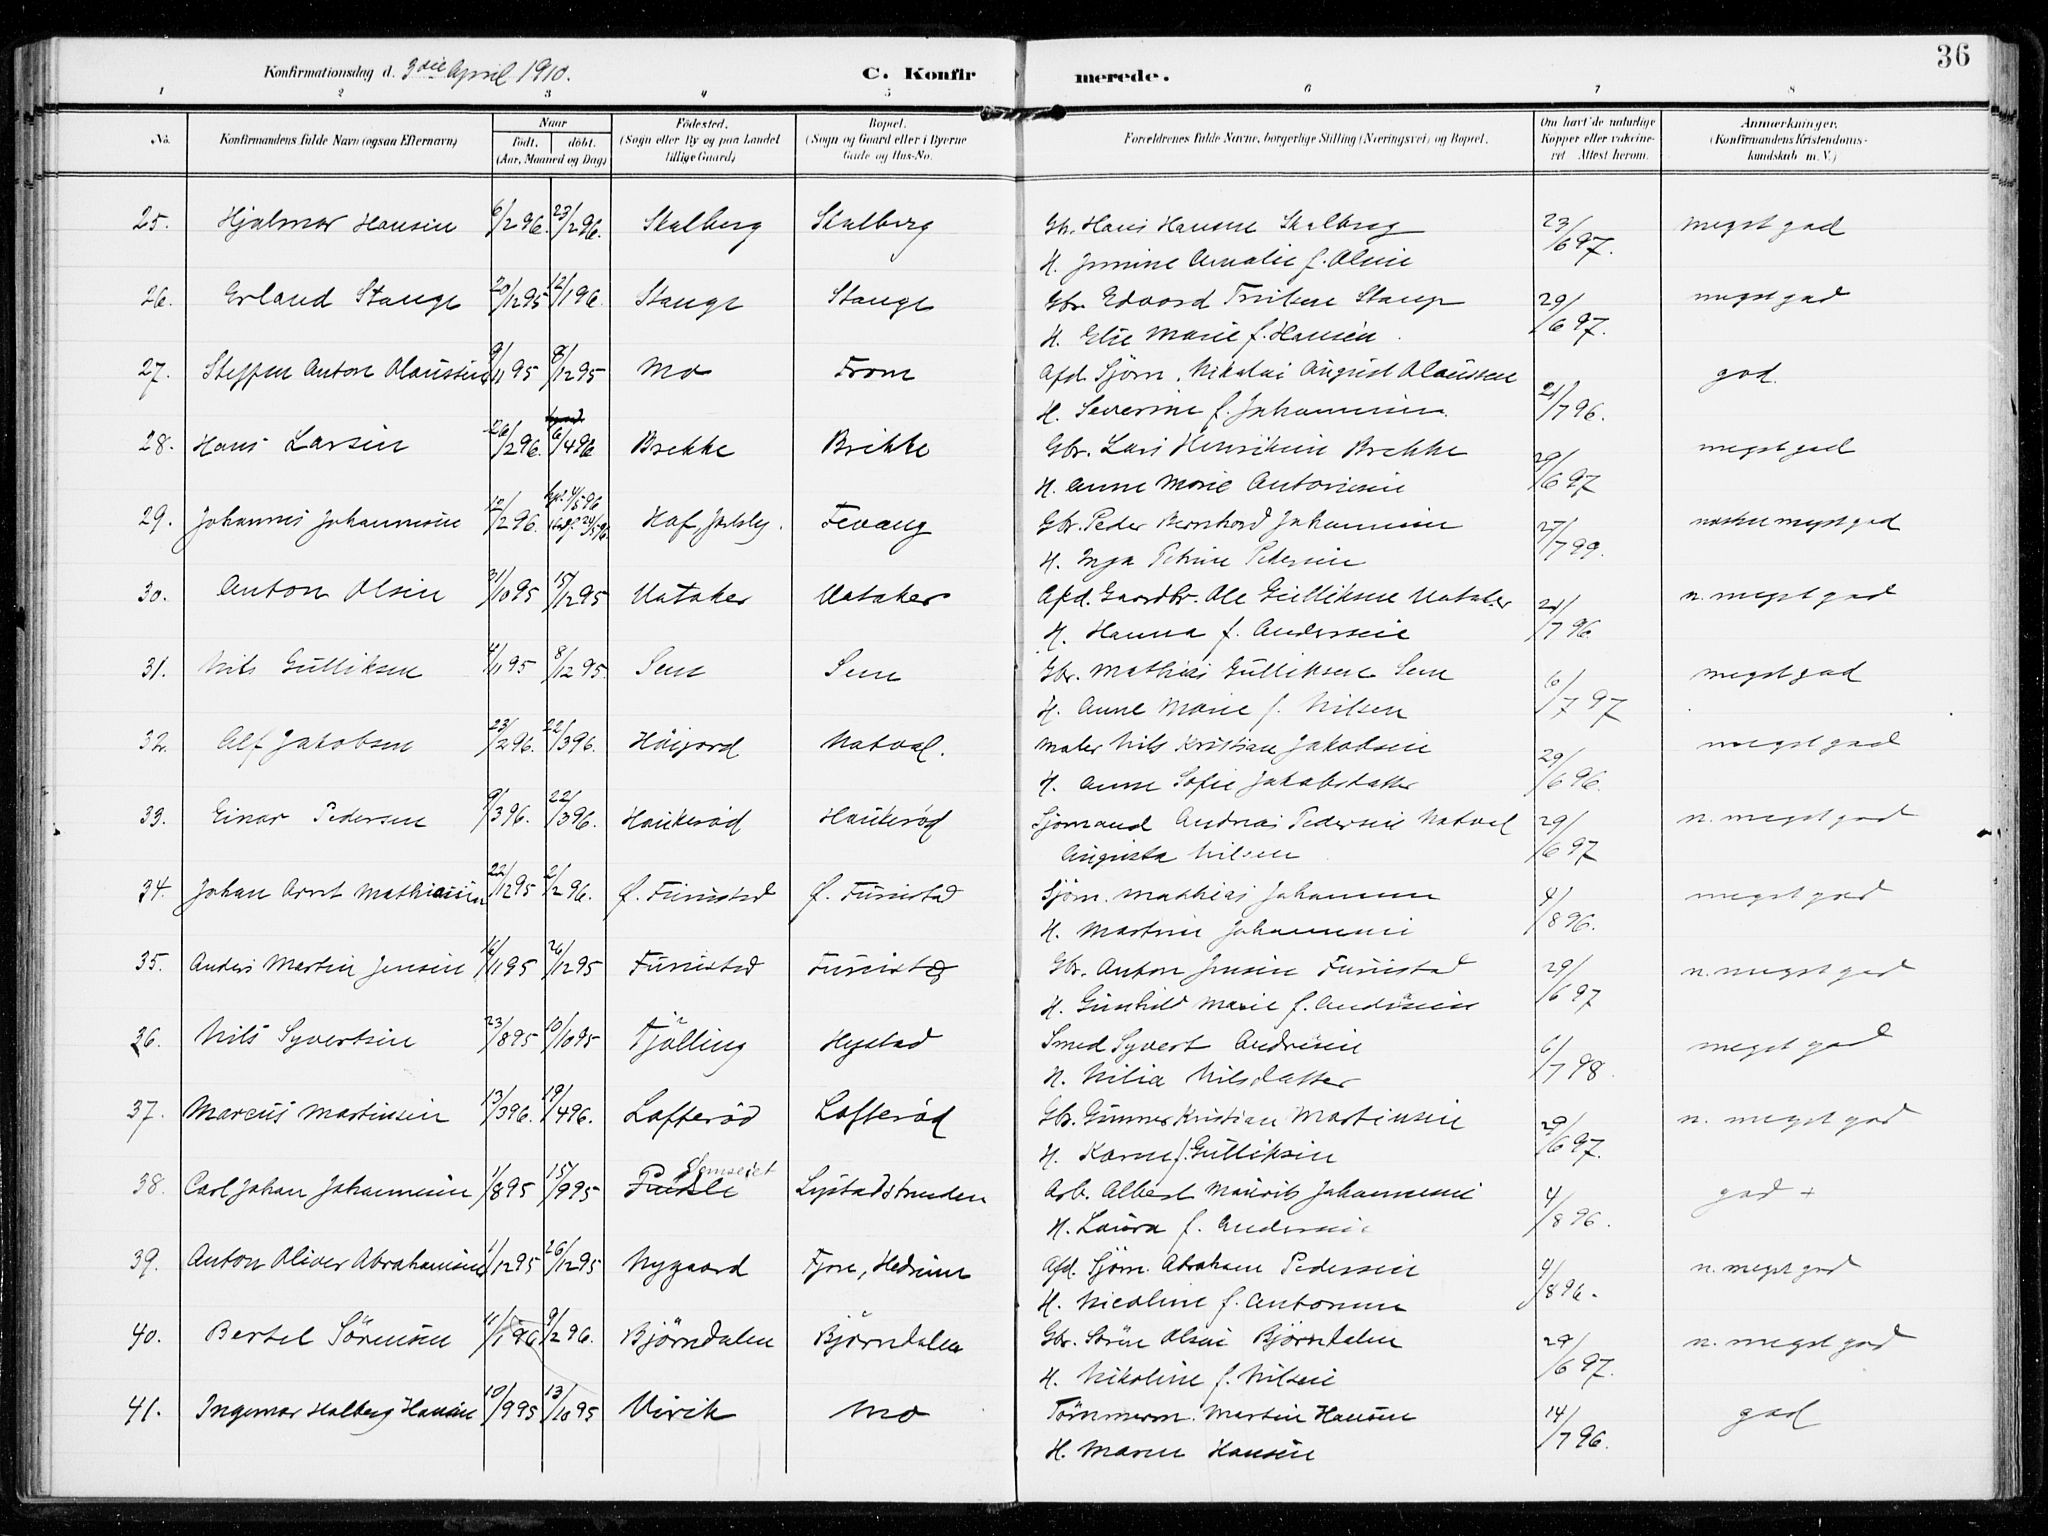 36
Konfirmationsdag d. 3die April 1910. C. Konfirmerede.
1 2 3 4 5 6 7 8
No. Konfirmandens fulde Navn (ogsaa Efternavn) Naar født. døbt. (Aar, Maaned og Dag) Fødested. (Sogn eller By og paa Landet tillige Gaard) Bopæl. (Sogn og Gaard eller i Byerne Gade og Hus-No. Forældrenes fulde Navne, borgerlige Stilling (Næringsvei) og Bopæl. Om havt de naturlige Kopper eller vakcineret Attest herom. Anmærkninger. (Konfirmandens Kristendomskundskab m. V.)
25. Hjalmar Hansen 6/2 96. 23/2 96. Skalberg Skalberg Gbr. Hans Hansen Skalberg 23/6 97. meget god
H. Jensine Amalie f. Olsen
26. Erland Stange 20/12 95 12/1 96. Stange Stange Gbr. Edvard Stange 29/6 97. meget god
H. Elise Marie f. Hansen
27. Steffen Anton Olaussen 9/11 95 8/12 95 Mo From Afd. Sjöm. Nikolai August Olaussen 21/7 96. god.
H. Severine f. Johannesen
28. Hans Larsen 26/2 96. 6/4 96 Brekke Brekke Gbr. Lars Henriksen Brekke 29/6 97 meget god
H. Anne Marie Antonisen
29. Johannes Johannesen 12/2 96. Hof, Jarlsbg. Fevang Gbr. Peder Bernhard Johannesen 27/7 99. næsten meget god
H. Inga Petrine Pedersen
30. Anton Olsen 31/10 95 15/12 95 Uataker Uataker Afd. Gaardbr. Ole Gulliksen Uataker 21/7 96 n. meget god
H. Hanna f. Andersen
31. Nils Gulliksen 4/11 95 8/12 95. Sem Sem Gbr. Mathias Gulliksen Sem 6/7 97 meget god
H. Anne Marie f. Nilsen
32. Alf Jakobsen 23/2 96. 22/3 96. Höijord Natval. Maler Nils Kristian Jakobsen 29/6 96. meget god
H. Anne Sofie Jakobsdatter
33. Einar Pedersen 9/3 96. 22/3 96. Haukerød Haukerød Sjömand Andreas Pedersen Natval 29/6 97 n. meget god
Augusta Nilsen
34. Johan Arnt Mathiassen 22/12 95 2/2 96. Ø. Furustad Ø. Furustad Sjöm. Mathias Johannesen 4/8 96. meget god
H. Martine Johannesen
35. Anders Martin Jensen 16/11 95 26/12 95 Furustad Furustad Gbr. Anton Jensen Furustad 29/6 97 n. meget god
H. Gunhild Marie f. Andersen
36. Nils Syvertsen 23/8 95 10/10 95 Tjölling Hystad Smed Syvert Andresen 6/7 98. meget god
H. Nilia Nilsdatter
37. Marcus Martinsen 13/3 96. 19/4 96. Lofterød Lofterød Gbr. Gunner Kristian Martinsen 29/6 97. n. meget god
H. Karen f. Gulliksen
38. Carl Johan Johannesen 1/8 95 15/9 95 Lystadstranden Arb. Albert Maurits Johannesen 4/8 96. god +
H. Laura f. Andersen
39. Anton Oliver Abrahamsen 1/12 95 26/12 95 Nygaard Fjøre, Hedrum Afd. Sjöm. Abraham Pedersen 4/8 96. n. meget god
H. Nicoline f. Antonsen
40. Bertel Sörensen 11/1 96 9/2 96. Björndalen Björndalen Gbr. Sören Olsen Björndalen 29/6 97. n. meget god
H. Nikoline f. Nilsen
41. Ingemar Halberg Hansen 10/9 95 13/10 95 Virik Mo Tömmerm. Martin Hansen 14/7 96. god
H. Maren Hansen